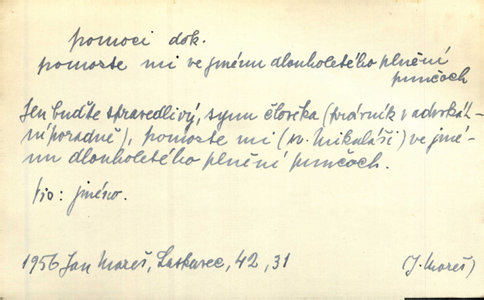 pomoci dok.
pomozte mi ve jménu dlouholetého plnění
punčoch
Jen buďte spravedlivý, synu člověka (právník v advokát-
ní poradně), pomozte mi (sv. Mikuláši) ve jmé-
nu dlouholetého plnění punčoch.
jméno.
1956 Jan Mareš, Laskavec, 42, 31
(J. Mareš)